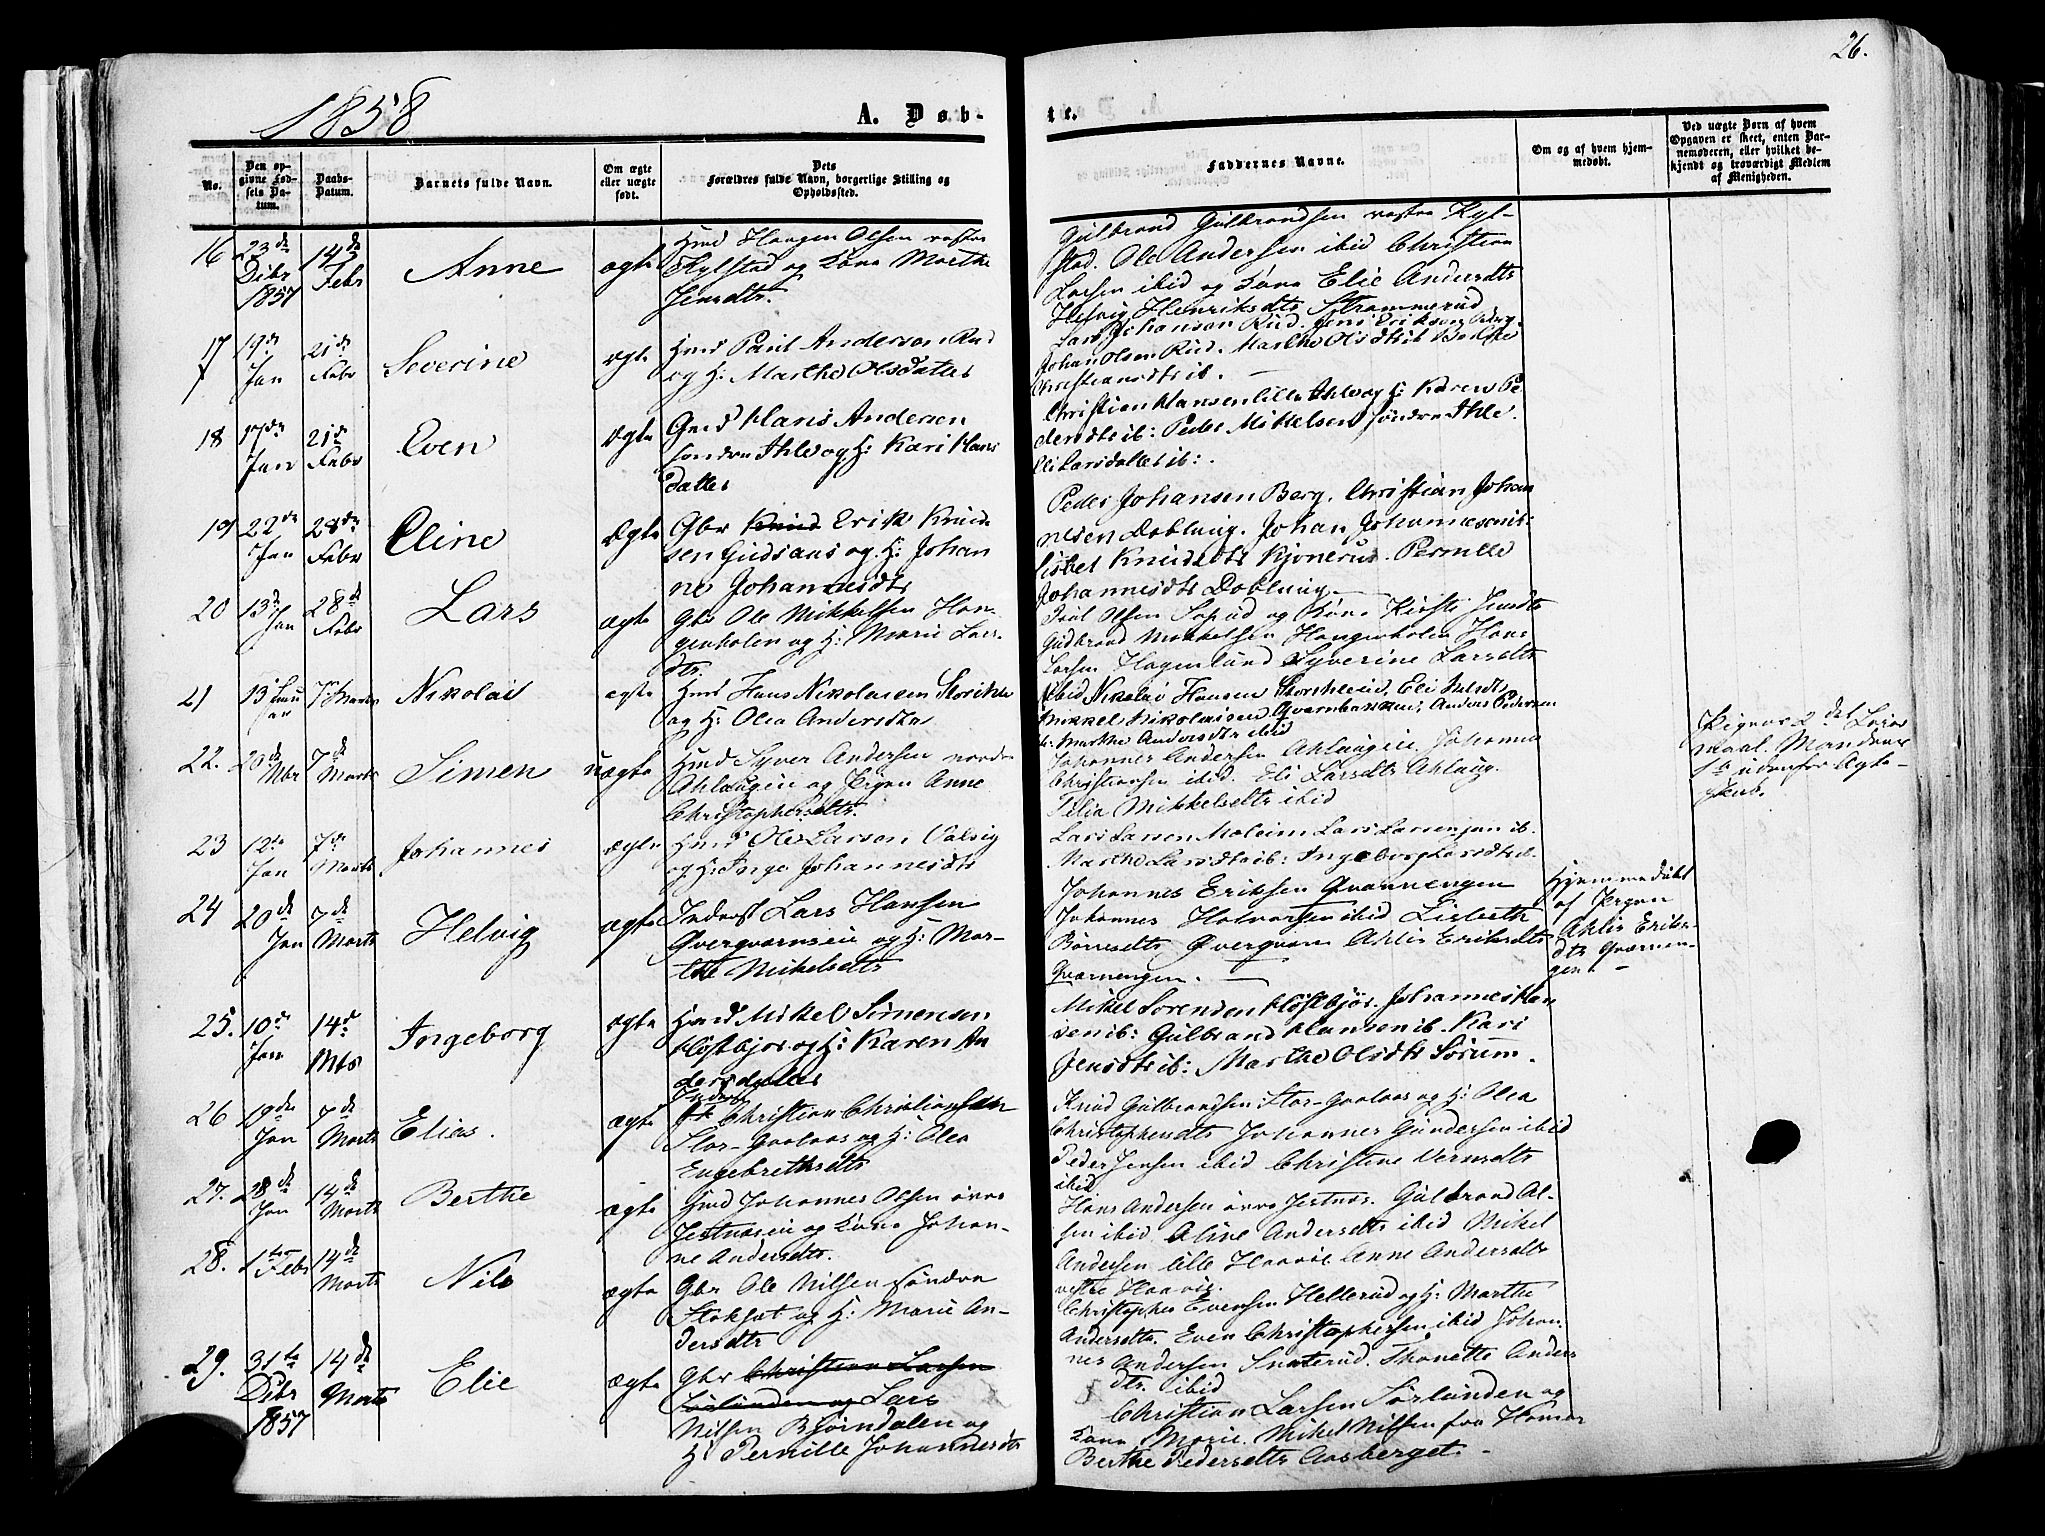 26.
1858
A. Døb-
te.
No.
Den op-
givne Fød-
sels Da-
tum.
Daabs-
Datum.
Barnets fulde Navn.
Om ægte
eller uægte
født.
Dets
Forældres fulde Navn, borgerlige Stilling og
Opholdssted.
Faddernes Navne.
Om og af hvem hjem-
medøbt.
Ved uægte Børn af hvem
Opgaven er skeet, enten Bar-
nemoderen, eller hvilket be-
kjendt og troværdigt Medlem
af Menigheden.
16
23de
Dcbr
1857
14de
Febr
Anne
ægte
Hmd Haagen Olsen vestre
Kylstad og Kone Marthe
Jensdtr.
Gulbrand Gulbrandsen vestre Kyl-
stad. Ole Andersen ibid Christian
Larsen ibid og Kone Elie Andersdtr
Helvig Henriksdtr Strommerud
17
19de
Jan
21de
Febr
Severine
ægte
Hmd Paul Anderson Rud
og H: Marthe Olsdatter
Lars Johanson Rud. Jens Erikson
Johan Olsen Rud. Marthe Olsdtr ib
Christiansdtr ib.
18
17de
Jan
21de
Febr
Even
ægte
Gmd Hans Andersen
søndre Ihle og H: Kari Hans
datter
Christian Hansen lille Ihle og H: Karen Pe
dersdtr ib: Peder Mikkelsen søndre Ihle.
Eli Larsdatter ib:
19
22de
Jan
28de
Febr
Eline
Ægte
Gbr Knud Erik Knud
sen og H: Johan
ne Johannesdtr
Peder Johansen Berg. Christian Johan
nesen Døblung. Johan Johannesen ib:
Lisbet Knudsdtr Kjonerud. Pernille
Johannesdtr Doblung.
20
13de
Jan
28de
Febr
Lars
ægte
Gbr Ole Mikkelsen Hau-
genholen og H: Marie Lars-
dtr.
Poul Olsen og Kone Kirsti Jensdtr
Gudbrand Mikkelsen Haugenholen Hans
Larsen Hagenlund Syverine Larsdtr
21
13
Jan
7 Marts
Nikolai
ægte
Hmd Hans Nikolaisen
og H: Olea Andersdtr
ibid Nikolai Hansen Eli
Mikkel Nikolaisen Qvernbakken, Anders Pedersen
Marthe Andersdtr ibid
22.
20de
Nbr
7de
Marts
Simen
uægte
Hmd Syver Andersen nordre
og Pigen Anne
Christophersdtr.
Johannes Andersen Johannes
Christiansen ibid. Eli Larsdtr
Mikkelsdtr ibid
Pigens 2det Leier
maal. Mandens
1ste udenfor Ægte-
skab.
23
12te
Jan
7de
Marts
Johannes
ægte
Hmd Ole Larsen
og H: Inge Johannesdtr
Lars Larsen Lars Larsen jun ib.
Marthe Larsdtr ib: Ingeborg Larsdtr ib.
24
20de
Jan
7de
Marts
Helvig
ægte
Inderst Lars Hansen
og H: Mar-
the Mikelsdtr
Johannes Eriksen Qvarnengen
Johannes Halvorsen ibid Lisbeth
Øvergvarn Ahlis Eriksdtr
Qvarnengen.
Hjemmedøbt
af Pigen
Ahlis Eriks-
dtr Qvarnen-
gen.
25.
10de
Jan
14de
Mts
Ingeborg
ægte
Hmd Mikel Simensen
Klostbjor og H: Karen An
dersdatter
Mikel Sorensen Klostbjor. Johannes Han
sen ib: Gulbrand Hansen ib. Kari
Jensdtr ib: Marthe Olsdtr Sørum.
26
19de
Jan
7de
Marts
Elias.
ægte
Inderst
Christian Christiansen
Stor- og H: Olea
Engebrethsdtr
Knud Gulbrandsen Stor- og H: Olea
Christophersdtr Johannes Gundersen ibid
Peder Jensen ibid Christine
ibid
27.
28de
Jan
14de
Marts
Berthe
ægte
Hmd Johannes Olsen øvre
og Kone Johan-
ne Andersdtr.
Hans Andersen øvre Jestnes. Gulbrand Ol-
sen ibid Aline Andersdtr ibid Mikel
Andersen lille Anne Andersdtr
vestre
28.
1ste Febr
14de
Marts
Nils
ægte
Gbr Ole Nilsen søndre
og H: Marie An-
dersdtr
Christopher Evensen Hellerud og H: Marthe
Andersdtr. Even Christophersen ibid Johan-
nes Andersen Thonette Anders
dtr. ibid
29.
31te
Dcbr
1857
14de
Marts
Elie
ægte
Gbr Christian Larsen
Sørlunden og Lars
Nilsen Bjørndalen og
H: Pernille Johannesdtr
Christian Larsen Sørlunden og
Kone Marie. Mikel Nilsen fra
Berthe Pedersdtr Aasberget.